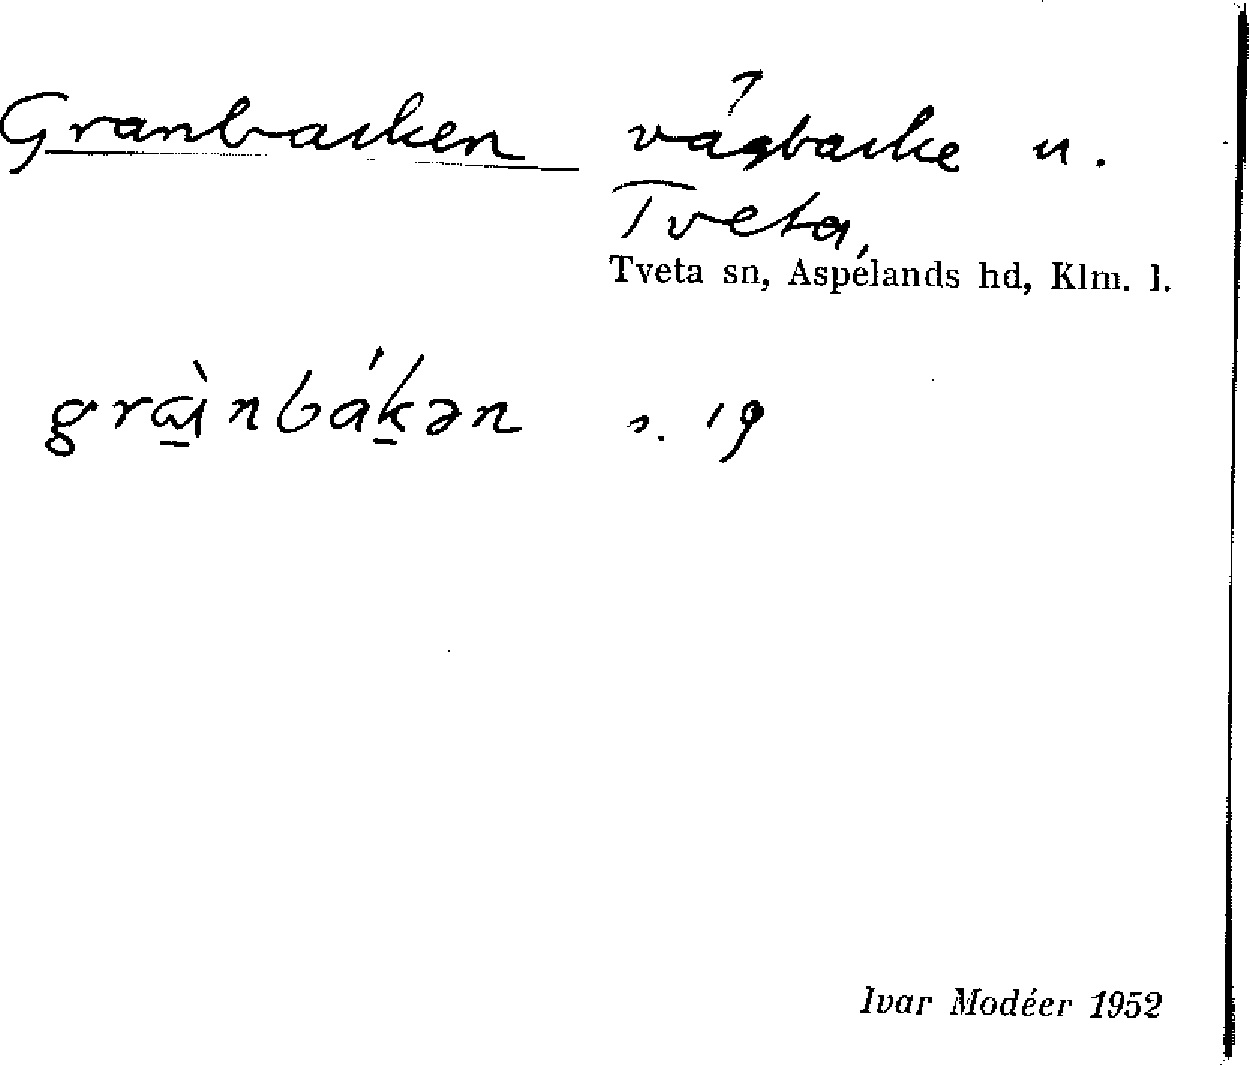 Granbacken vägbacke u.
Tveta,
Tveta sn, Aspelands hd, Klm. l.
s. 19
Ivar Modéer 1952